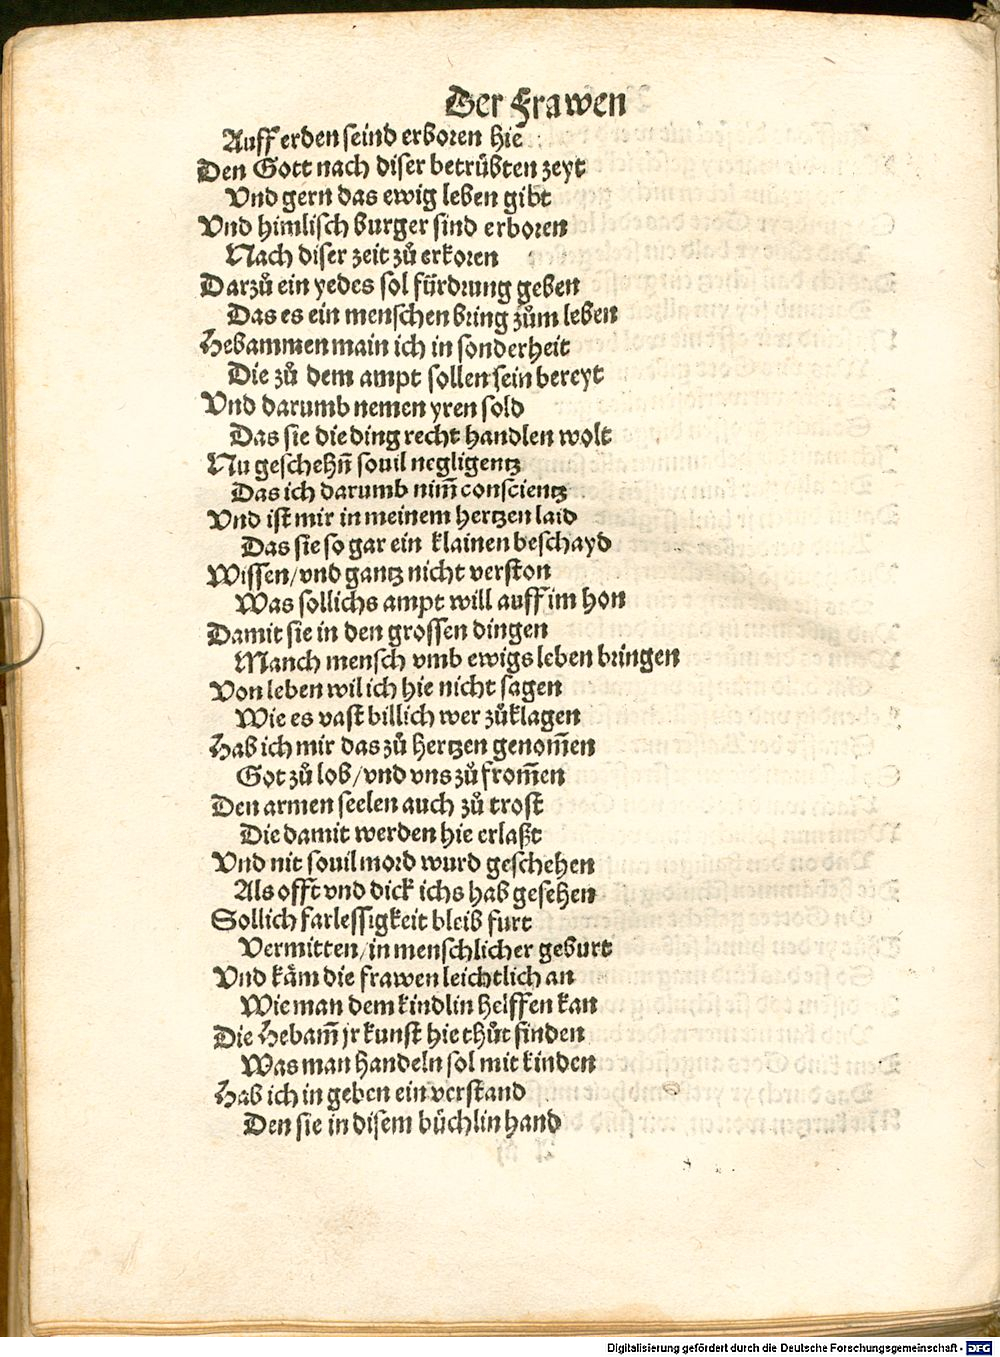 Der Frawen
Auff erden seind erboren hie
Den Gott nach diser betrübten zeyt
Vnd gern das ewig leben gibt
Vnd himlisch burger sind erboren
Nach diser zeit zů erkoren
Darzů ein yedes sol fürdrung geben
Das es ein menschen bring zům leben
Hebammen main ich in sonderheit
Die zů dem ampt sollen sein bereyt
Vnd darumb nemen yren sold
Das sie die ding recht handlen wolt
Nu geschehn̄ souil negligentz
Das ich darumb nim̄ conscientz
Vnd ist mir in meinem hertzen laid
Das sie so gar ein klainen beschayd
Wissen/vnd gantz nicht verston
Was sollichs ampt will auff im hon
Damit sie in den grossen dingen
Manch mensch vmb ewigs leben bringen
Von leben wil ich hie nicht sagen
Wie es vast billich wer zůklagen
Hab ich mir das zů hertzen genom̄en
Got zů lob/vnd vns zů from̄en
Den armen seelen auch zů trost
Die damit werden hie erlaßt
Vnd nit souil mord wurd geschehen
Als offt vnd dick ichs hab gesehen
Sollich farlessigkeit bleib furt
Vermitten/in menschlicher geburt
Vnd käm die frawen leichtlich an
Wie man dem kindlin helffen kan
Die Hebam̄ jr kunst hie thůt finden
Was man handeln sol mit kinden
Hab ich in geben ein verstand
Den sie in disem büchlin hand
Digitalisierung gefördert durch die Deutsche Forschungsgemeinschaft - DFG